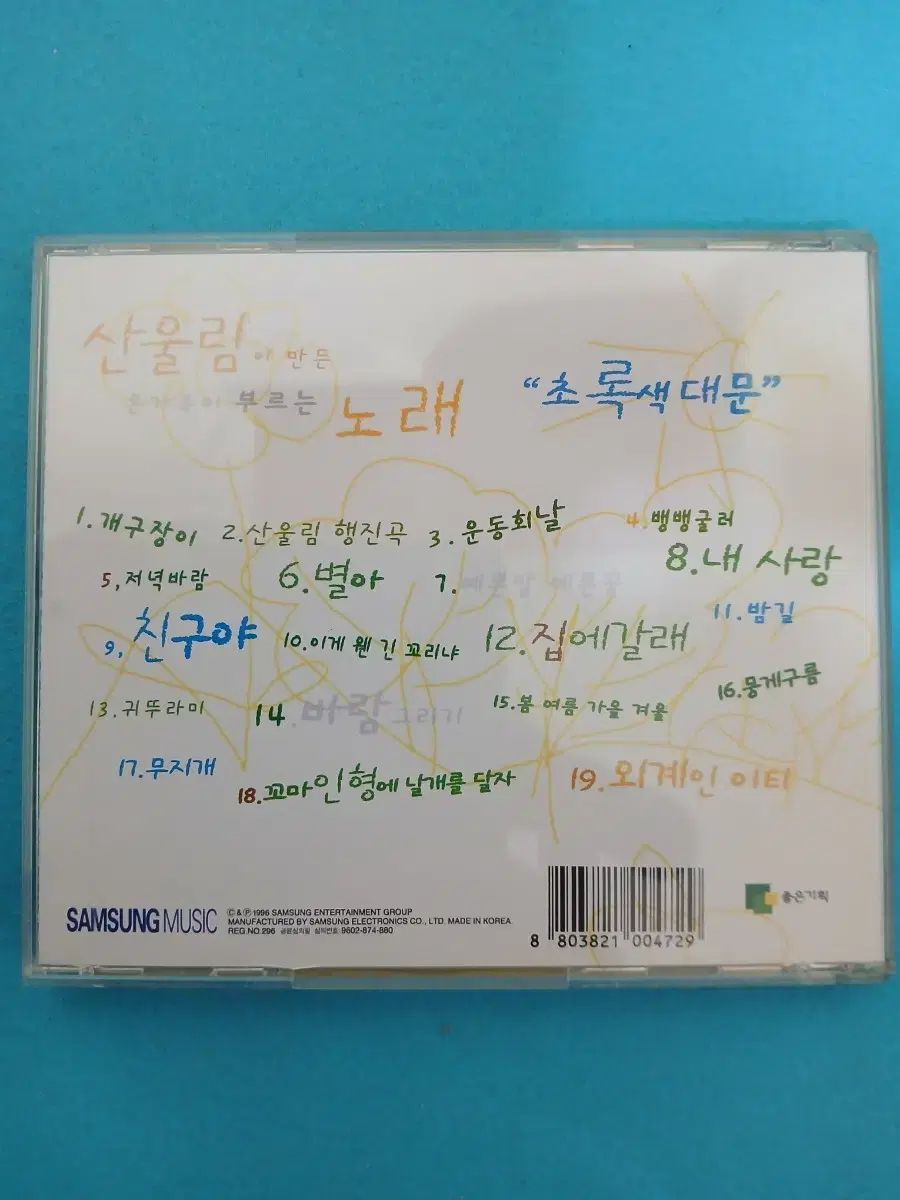 산울림이 만든
온가족이 부르는 노래 “초록색 대문”
1. 개구장이 2. 산울림 행진곡 3. 운동회날 4. 뱅뱅굴러
5. 저녁바람 6. 별아 7. 예쁜맘 예쁜꿈 8. 내 사랑
9. 친구야 10. 이게 웬 긴 꼬리냐 12. 집에갈래 11. 밤길
13. 귀뚜라미 14. 바람 그리기 15. 봄 여름 가을 겨울 16. 뭉게구름
17. 무지개 18. 꼬마인형에 날개를 달자 19. 외계인 이티
SAMSUNG MUSIC
©&℗ 1996 SAMSUNG ENTERTAINMENT GROUP
MANUFACTURED BY SAMSUNG ELECTRONICS CO., LTD. MADE IN KOREA.
REG.NO.296 공윤심의필 심의번호: 9602-874-880
8 803821 004729
좋은기획